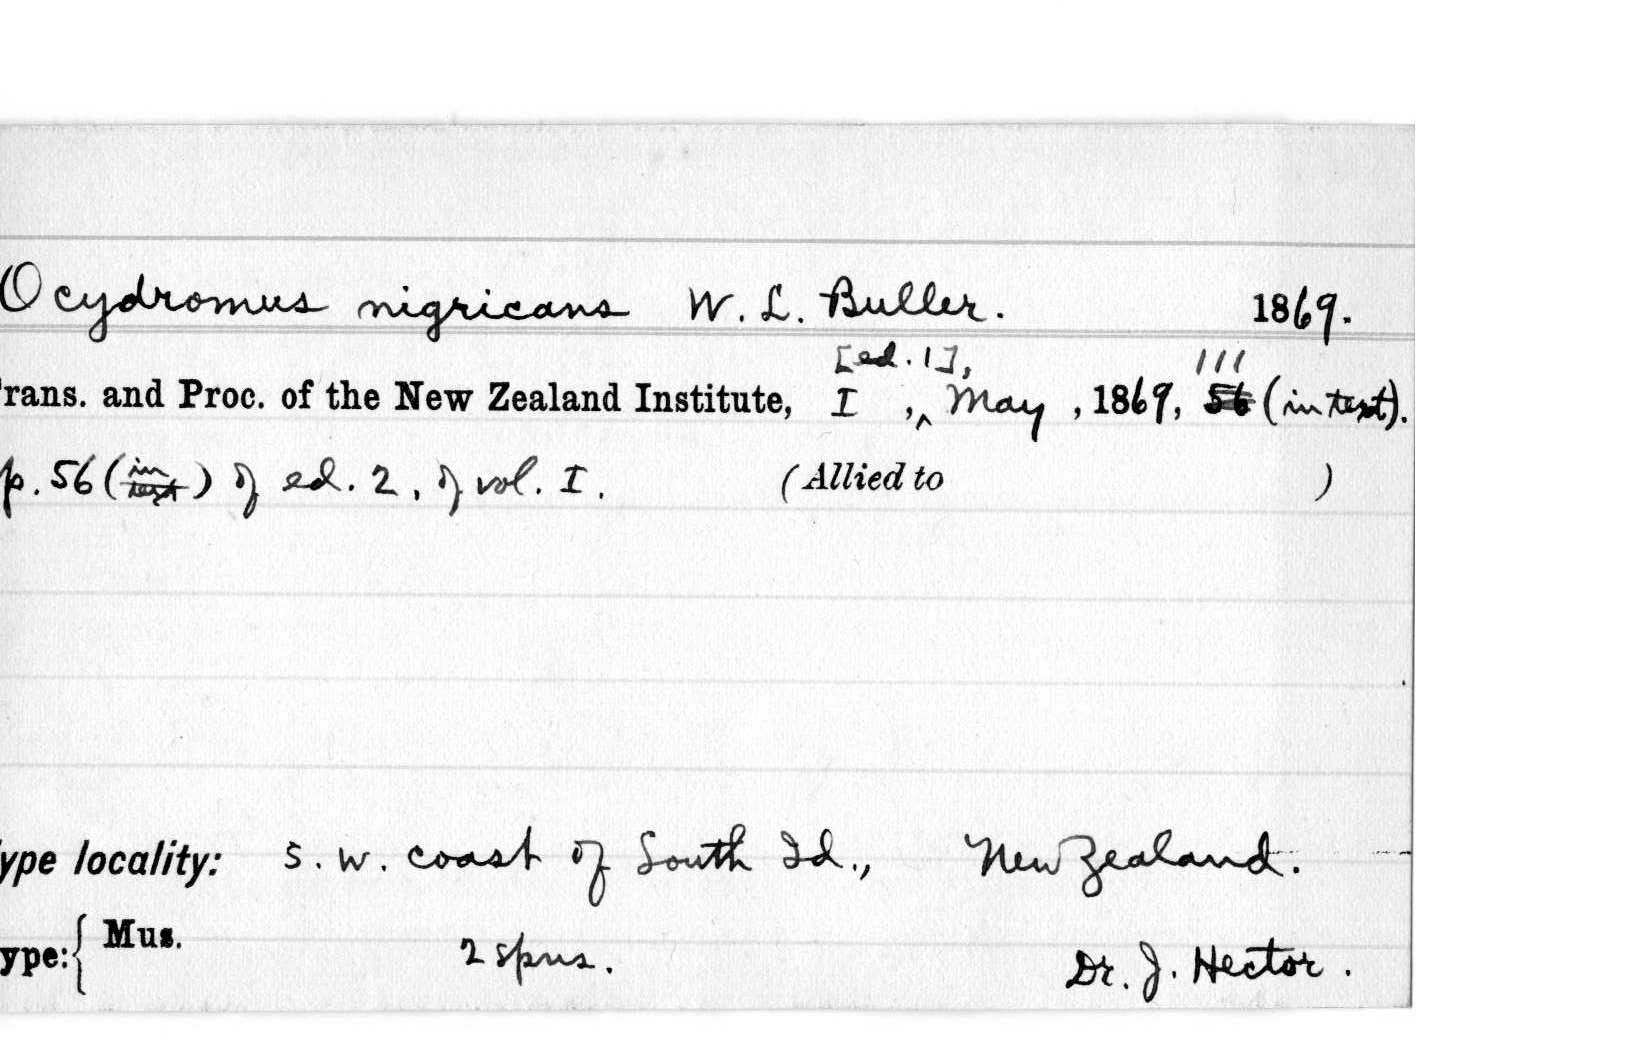 Ocydromus nigricans W. L. Buller. 1869.
[ed. 1], 111
rans. and Proc. of the New Zealand Institute, I , ‸ May , 1869, 56 (in text).
p. 56 (in text) of ed. 2, of vol. I. (Allied to )
ype locality: S. W. coast of South Id., New Zealand.
ype: { Mus. 2 spns. Dr. J. Hector.